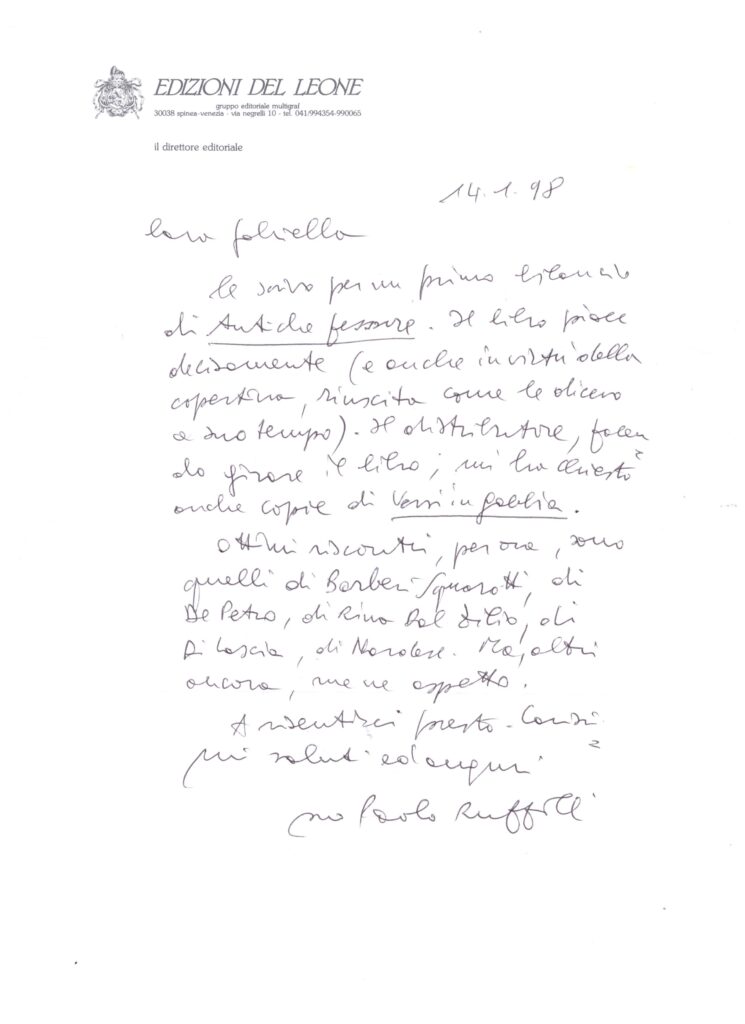 EDIZIONI DEL LEONE
gruppo editoriale multigraf
30038 spinea-venezia - via negrelli 10 - tel. 041/994354-990065
il direttore editoriale
14.1.98
Cara Gabriella
le scrivo per un primo bilancio
di Antiche fessure. Il libro piace
decisamente (e anche in virtù della
copertina, riuscita come le dicevo
a suo tempo). Il distributore, facen
do girare il libro, mi ha chiesto
anche copie di Versi in gabbia.
Ottimi riscontri, per ora, sono
quelli di Barberi Squarotti, di
De Petro, di Rina Dal Zilio, di
Di Lascia, di Marolese. Ma, altri
ancora, me ne aspetto.
A risentirci presto. Caris
mi saluti ed auguri
suo Paolo Ruffilli